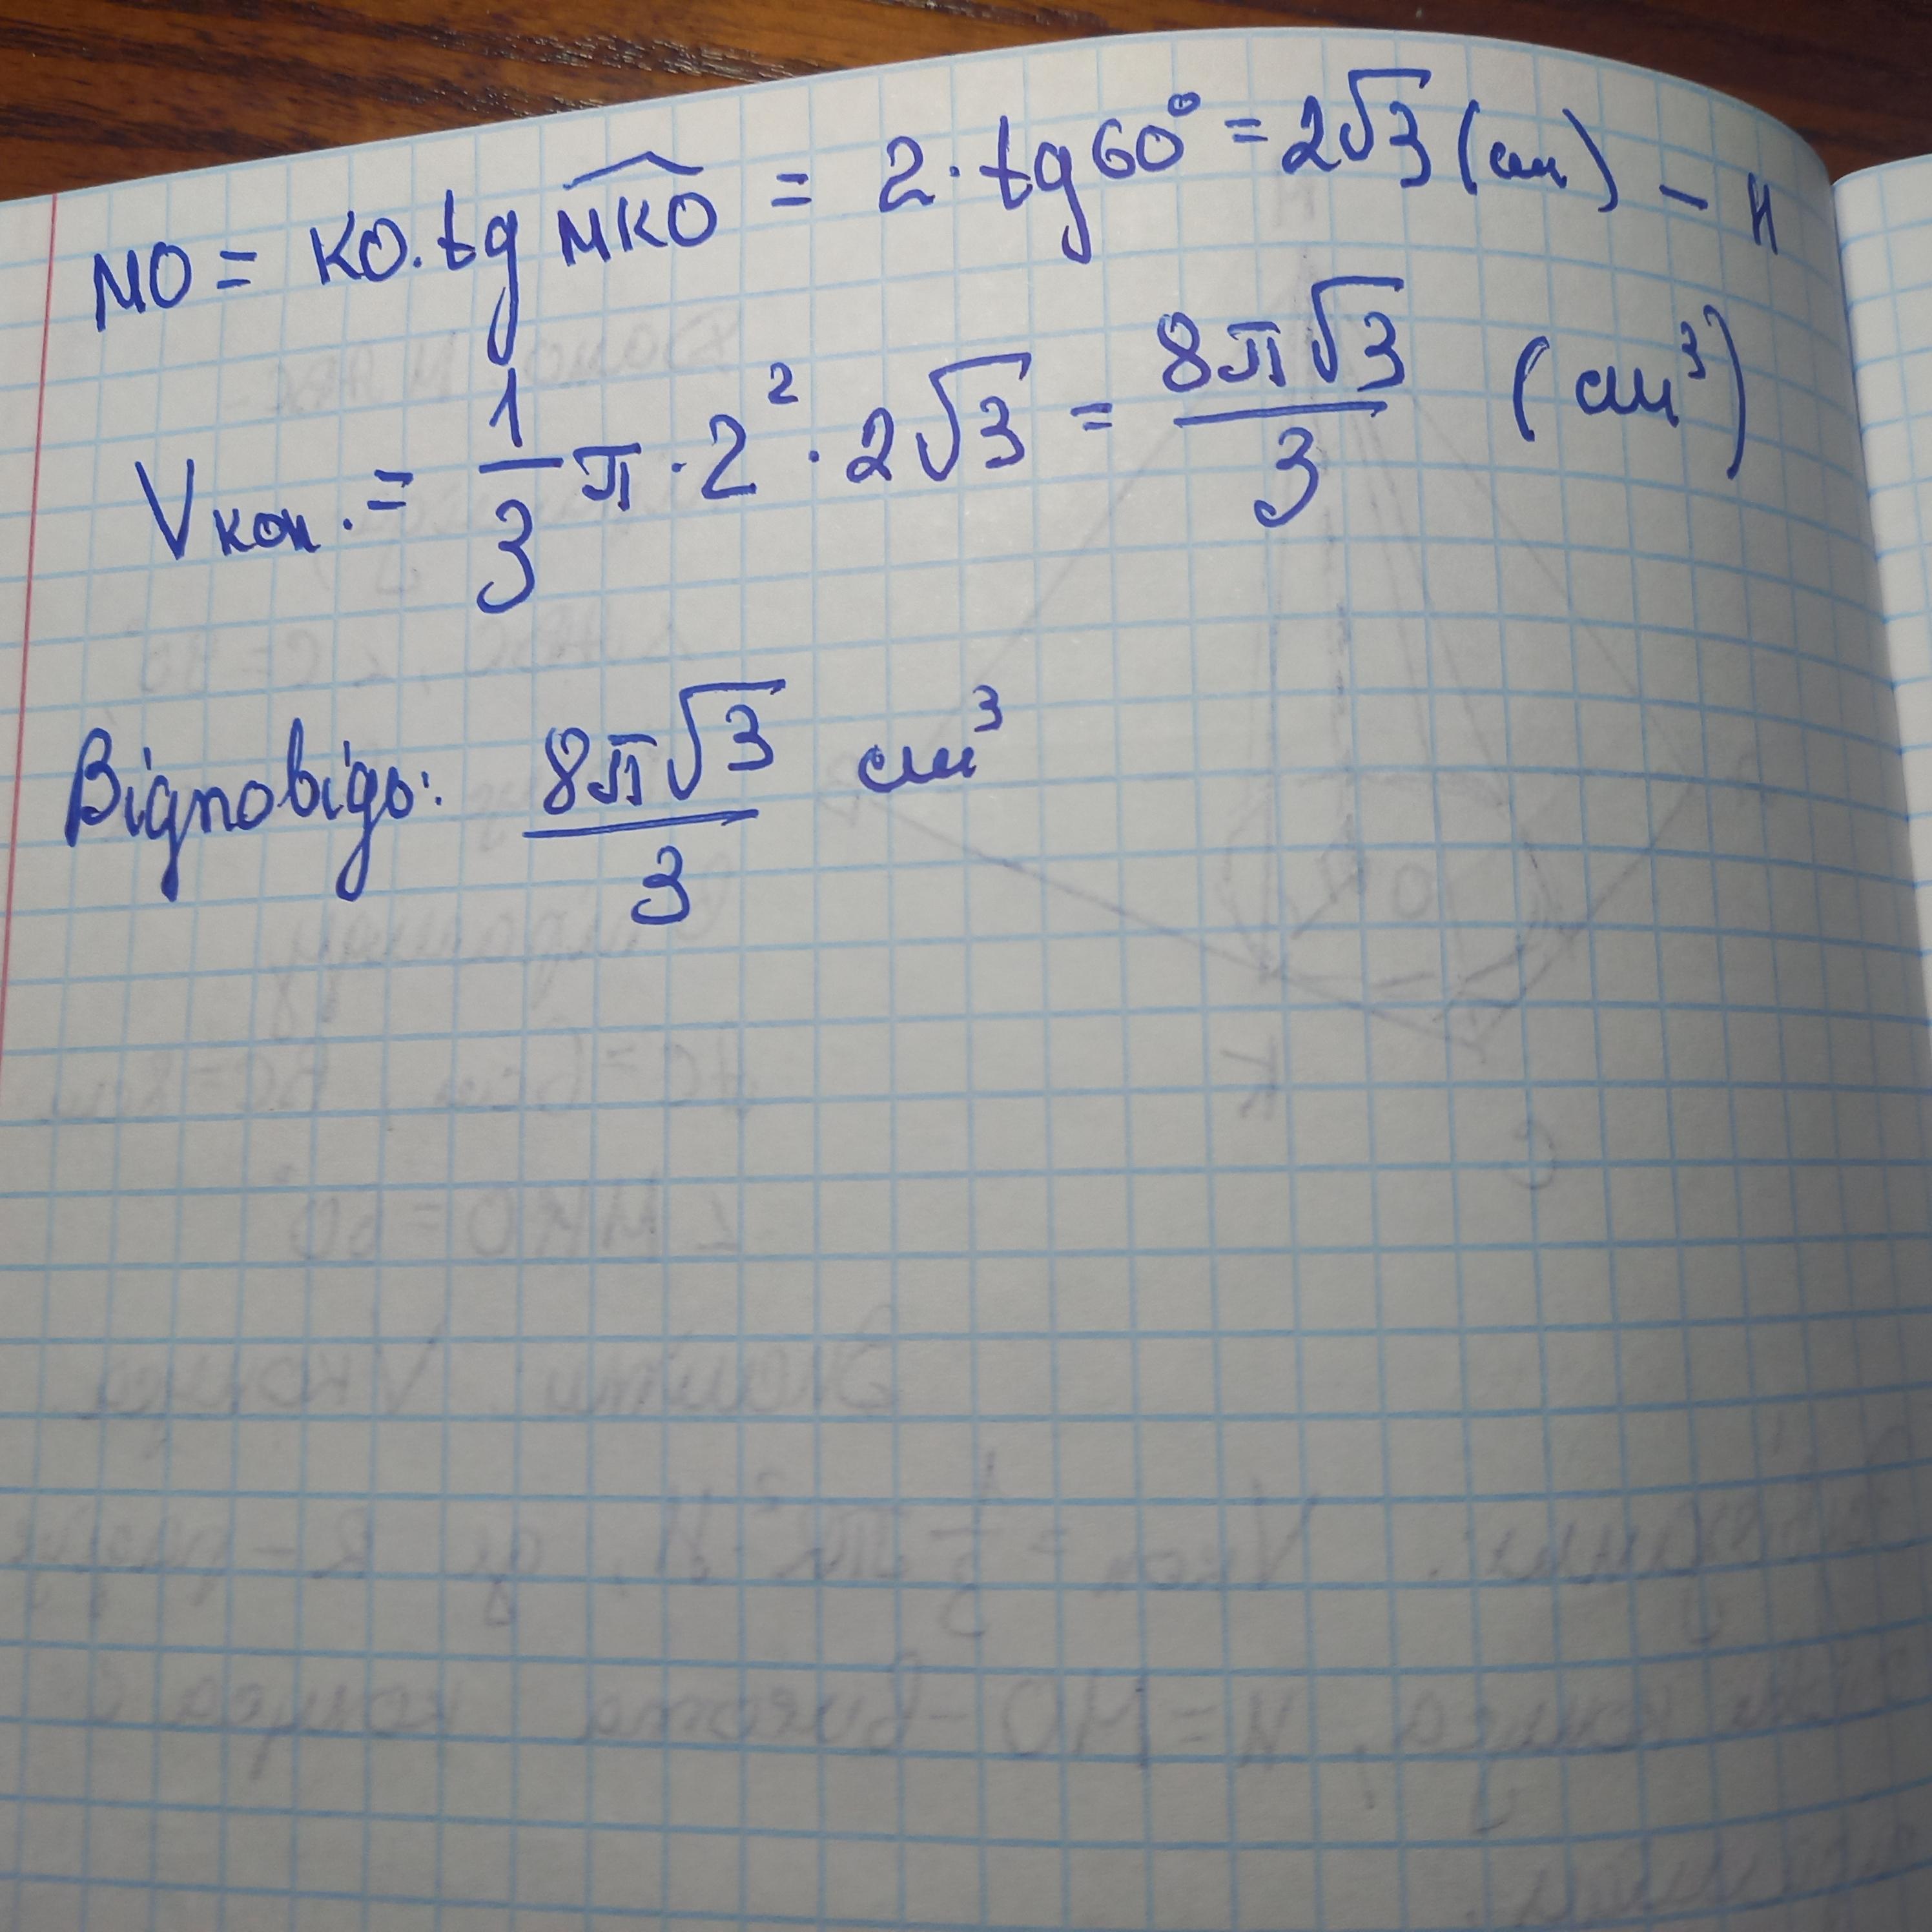 MO = KO · tg MKO = 2 · tg 60° = 2√3 (см) – H
Vкон. = 1/3 π · 2² · 2√3 = 8π√3/3 (см³)
Відповідь: 8π√3/3 см³